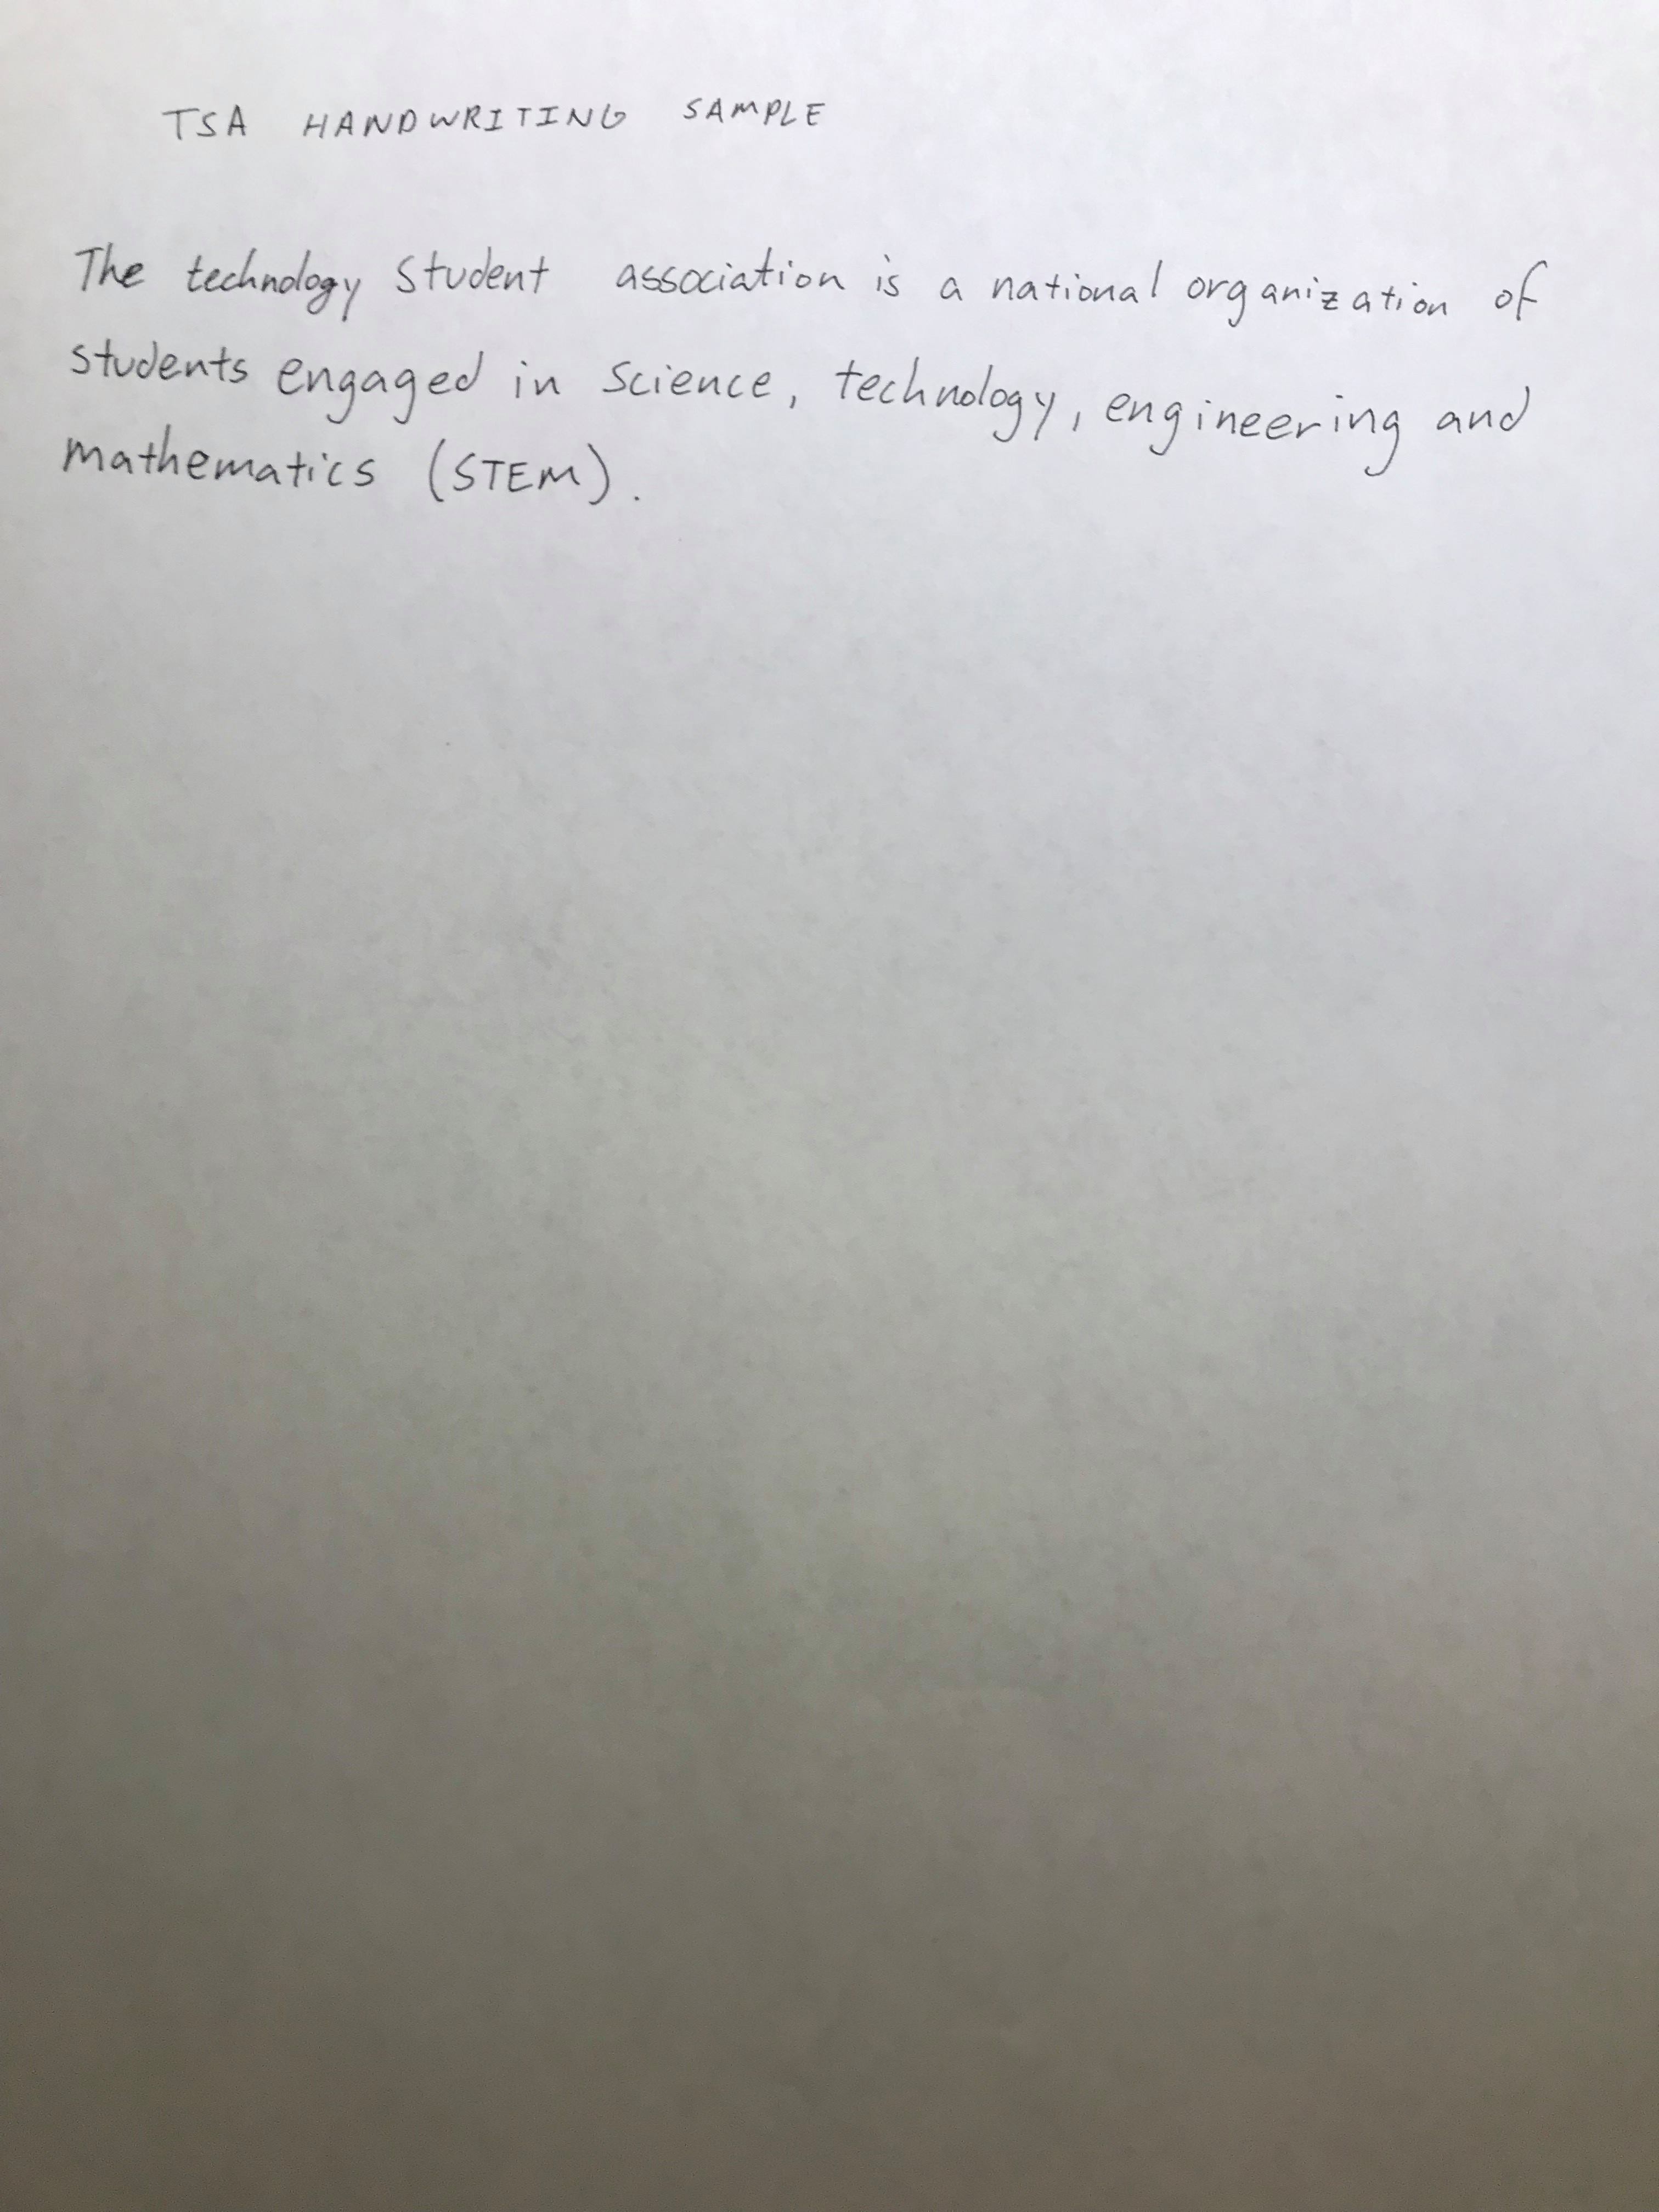 TSA HANDWRITING SAMPLE
The technology student association is a national organization of
students engaged in science, technology, engineering and
mathematics (STEM).